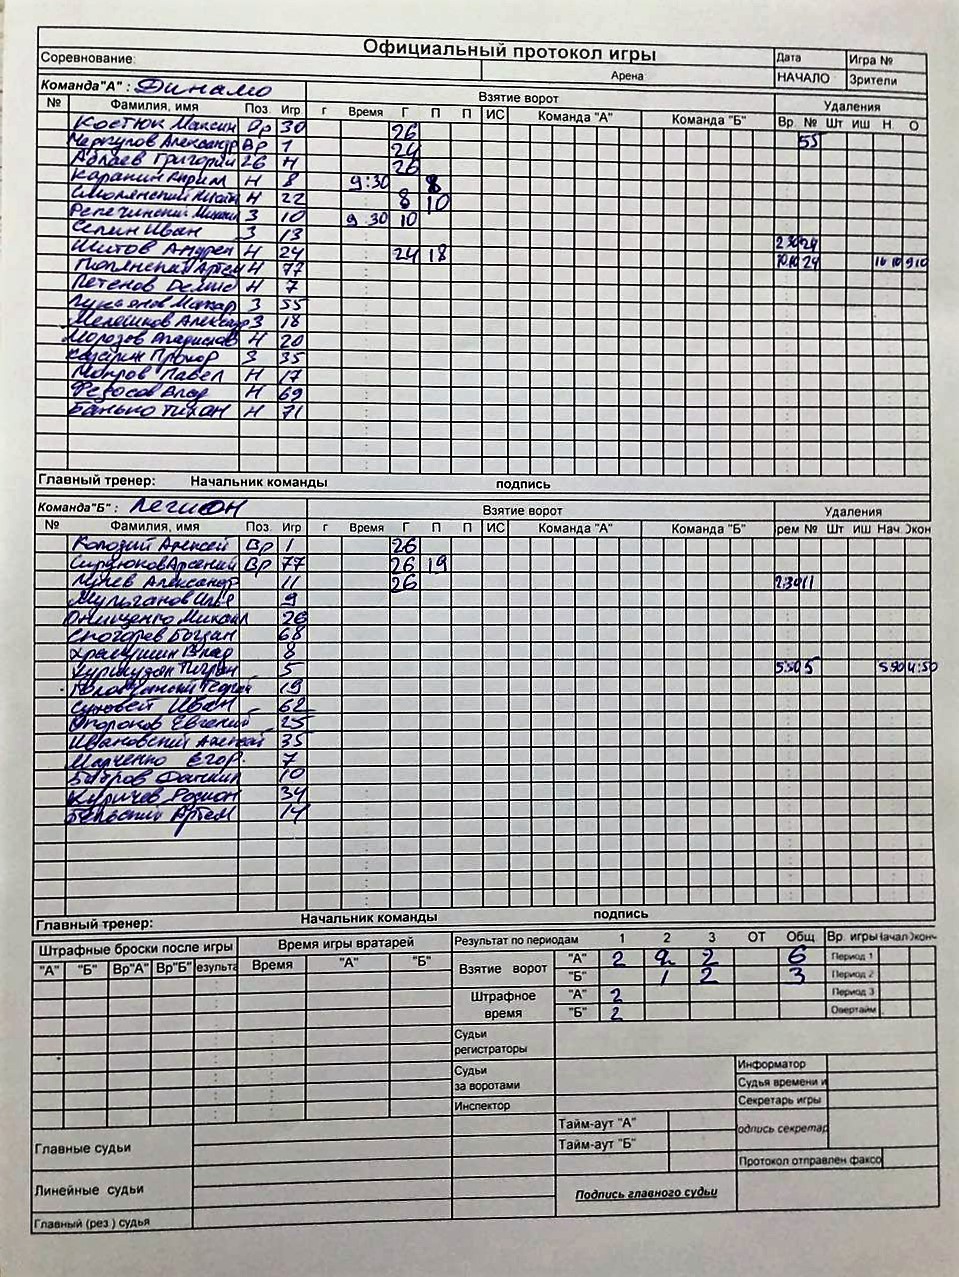 Официальный протокол игры
Соревнование: Арена Дата Игра №
НАЧАЛО Зрители
Команда"А" : Динамо Взятие ворот Удаления
№ Фамилия, имя Поз Игр г Время Г П П ИС Команда "А" Команда "Б" Вр. № Шт ИШ Н. О
Костюк Максим Вр 30 26
Меркулов Александр Вр 1 24 55
Аблаев Григорий 26 Н 26
Каранин Карим Н 8 9:30 8
Смолянский Н 22 8 10
Репечинский Михаил З 10 9 30 10
Селин Иван З 13
Шитов Андрей Н 24 24 18 2 30 24
Артем Н 77 10.10 24 9 10
Петенов Н 7
Лукьянов Макар З 55
Мелошиков Александр З 18
Морозов Владислав Н 20
Прохор З 35
Мокров Павел Н 17
Федосов Влад Н 69
Банько Тихон Н 71
Главный тренер: Начальник команды подпись
Команда"Б" : Легион Взятие ворот Удаления
№ Фамилия, имя Поз. Игр г Время Г П П ИС Команда "А" Команда "Б" рем № Шт ИШ Нач. Экон
Колозий Алексей Вр 1 26
Сердюков Арсений Вр 77 26 19
Лунев Александр 11 26 2 30 11
Мульганов Илья 9
Онищенко Михаил 26
Снегорев Богдан 68
Храмушин Влад 8
5 5 50 5 5 50 4:50
19
Суховей Иван 62
Опоронов Евгений 25
Ивановский Алексей 35
Марченко Егор. 7
Бобров 10
Куричев Родион 34
Бельский Артем 14
Главный тренер: Начальник команды подпись
Штрафные броски после игры Время игры вратарей Результат по периодам 1 2 3 ОТ Общ Вр. игры Начал Эконч
"А" "Б" Вр"А" Вр"Б" езульта Время "А" "Б" Взятие ворот "А" 2 2 2 6 Период 1
"Б" 1 2 3 Период 2
Штрафное время "А" 2 Период 3
"Б" 2 Овертайм
Судьи регистраторы
Судьи за воротами Информатор
Судья времени и
Инспектор Секретарь игры
Главные судьи Тайм-аут "А" одпись секретар
Тайм-аут "Б"
Протокол отправлен факсо
Линейные судьи Подпись главного судьи
Главный (рез.) судья